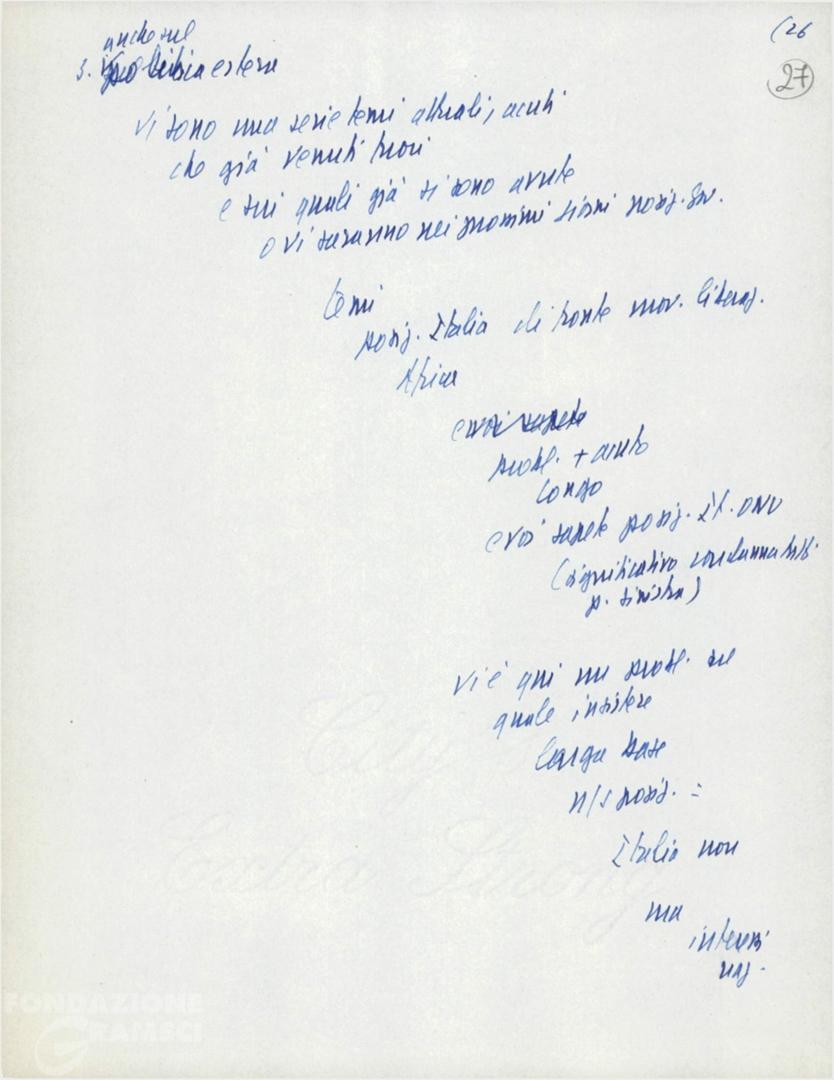 (26
27
anche sul
3. politica estera
vi sono una serie temi attuali, acuti
che già venuti fuori
e sui quali già si sono avute
o vi saranno nei prossimi giorni posiz. gov.
temi
posiz. Italia di fronte mov. liberaz.
Africa
e voi sapete
probl. + acuto
Congo
e voi sapete posiz. It. ONU
(significativo
p. sinistra)
vi è qui un probl. sul
quale insistere
larga base
n/s posiz. =
Italia non
ma
interessi
naz.
Extra Strong
FONDAZIONE
GRAMSCI